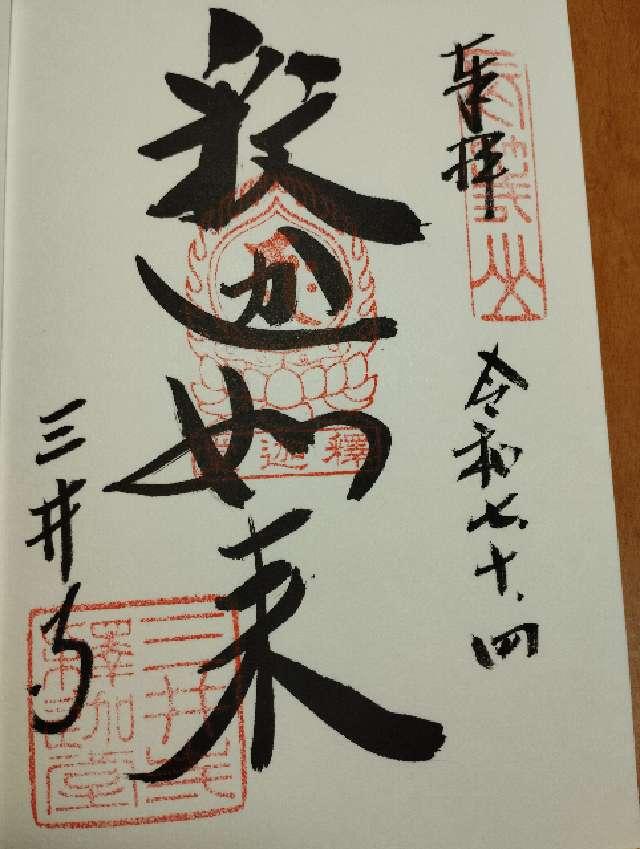 奉拝
長等山
令和七、十、四
釈迦如来
釋迦
三井寺
三井寺
釋迦堂